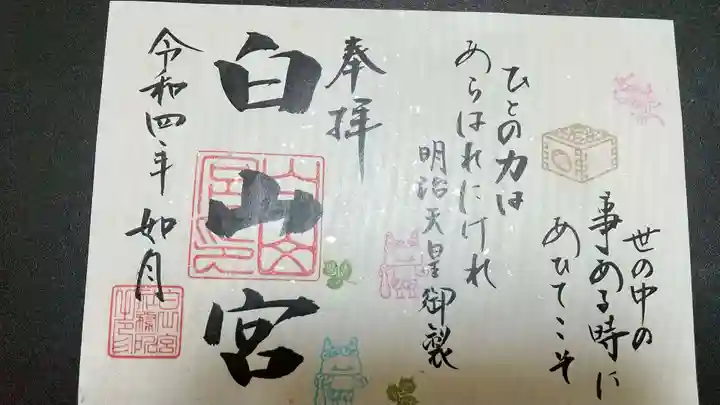 世の中の
事ある時に
あひてこそ
ひとの力は
あらはれにけれ
明治天皇御製
奉拝
白山宮
令和四年 如月